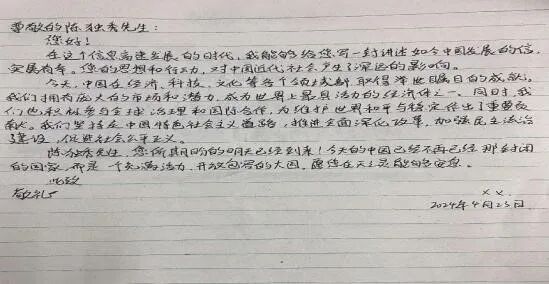 尊敬的陈独秀先生：
您好！
在这个信息高速发展的时代，我能够给您写一封讲述如今中国发展的信，
实属有幸。您的思想和行动，对中国近代社会产生了深远的影响。
今天，中国在经济、科技、文化等各个领域都取得举世瞩目的成就。
我们拥有庞大的市场和潜力，成为世界上最具活力的经济体之一。同时，我
们也积极参与全球治理和国际合作，为维护世界和平与稳定作出了重要贡
献。我们坚持走中国特色社会主义道路，推进全面深化改革，加强民主法治
建设，促进社会公平正义。
陈独秀先生，您所期盼的明天已经到来！今天的中国已经不再已经那封闭
的国家，而是一个充满活力、开放包容的大国。愿您在天之灵能够安息。
此致
敬礼
××.
2024年4月25日